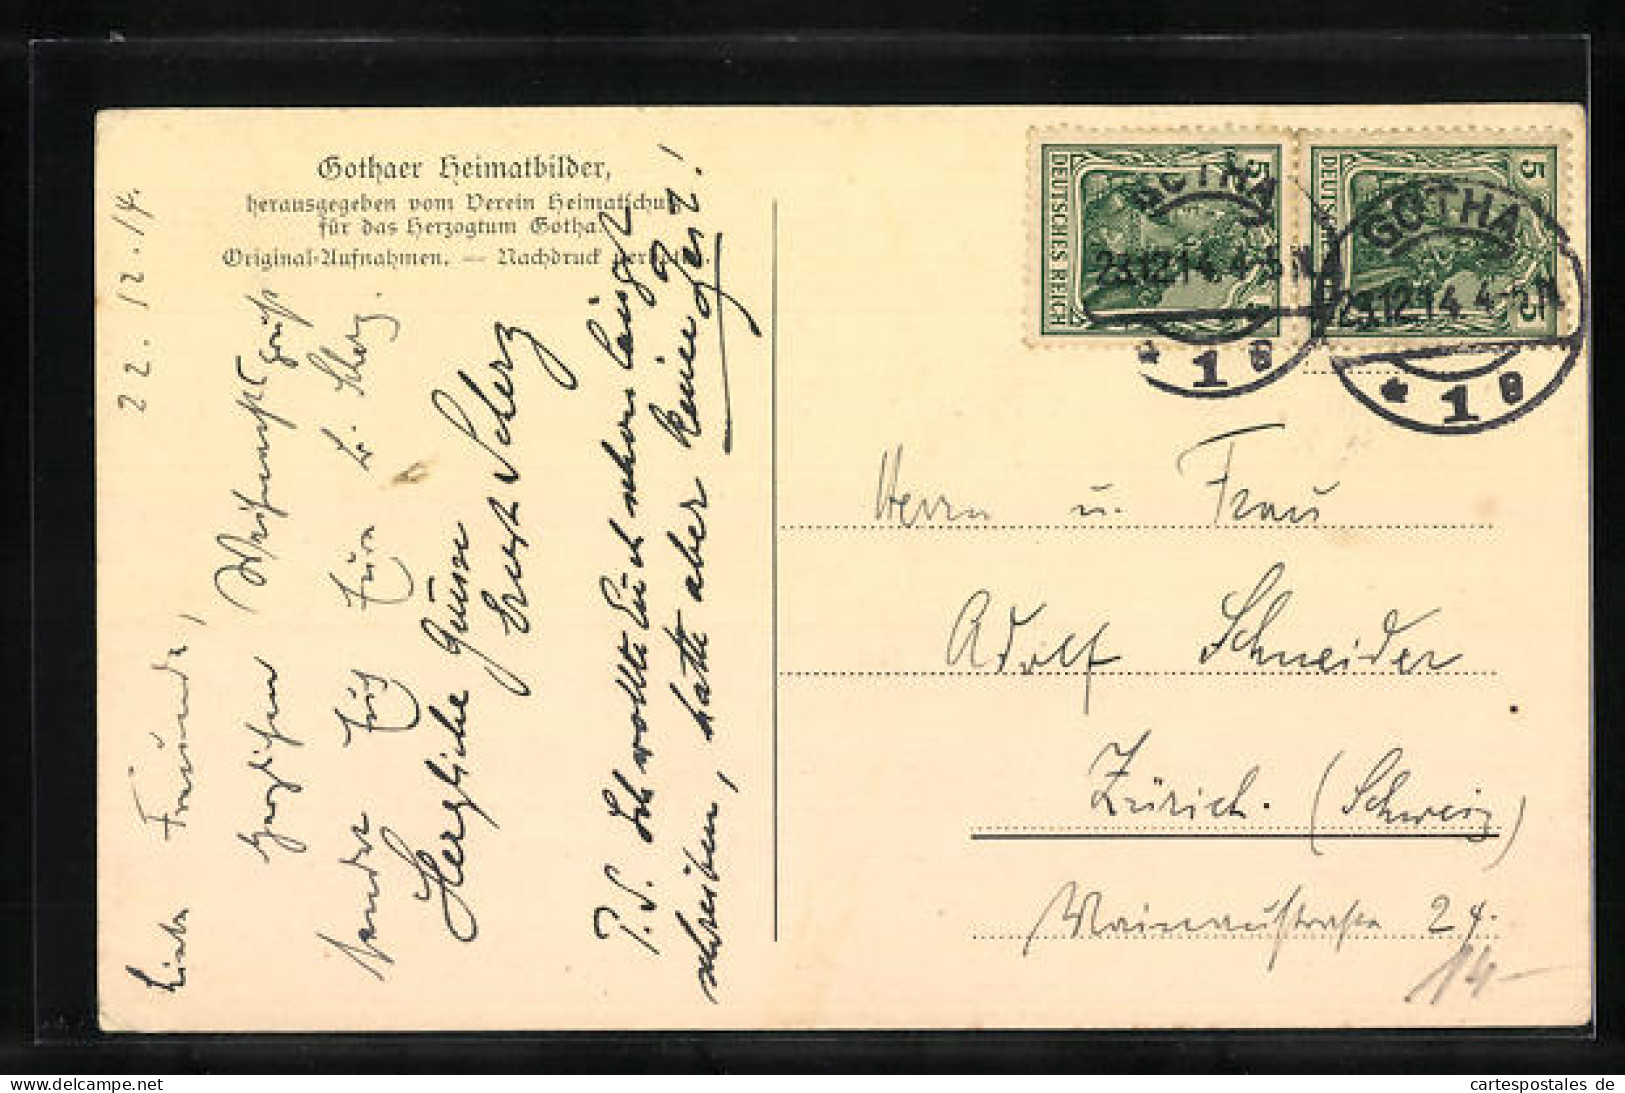 Gothaer Heimatbilder,
herausgegeben vom Verein Heimatschutz
für das Herzogtum Gotha.
Original-Aufnahmen. — Nachdruck verboten.
22.12.14.
Liebe Freunde,
Herzlichen Weihnachtsgruß
sendet Euch Eure L. Scherz.
Herzliche Grüsse
Ernst Scherz
P.S. Ich wollte Euch schon längst
schreiben, hatte aber keine
DEUTSCHES REICH
5
5
DEUTSCHES
5
5
GOTHA
23.12.14. 4-5 N
* 1 e
GOTHA
23.12.14. 4-5 N
* 1 e
Herrn u. Frau
Adolf Schneider
Zürich. (Schweiz)
Mainaustrasse 24.
14
cartespostales.de